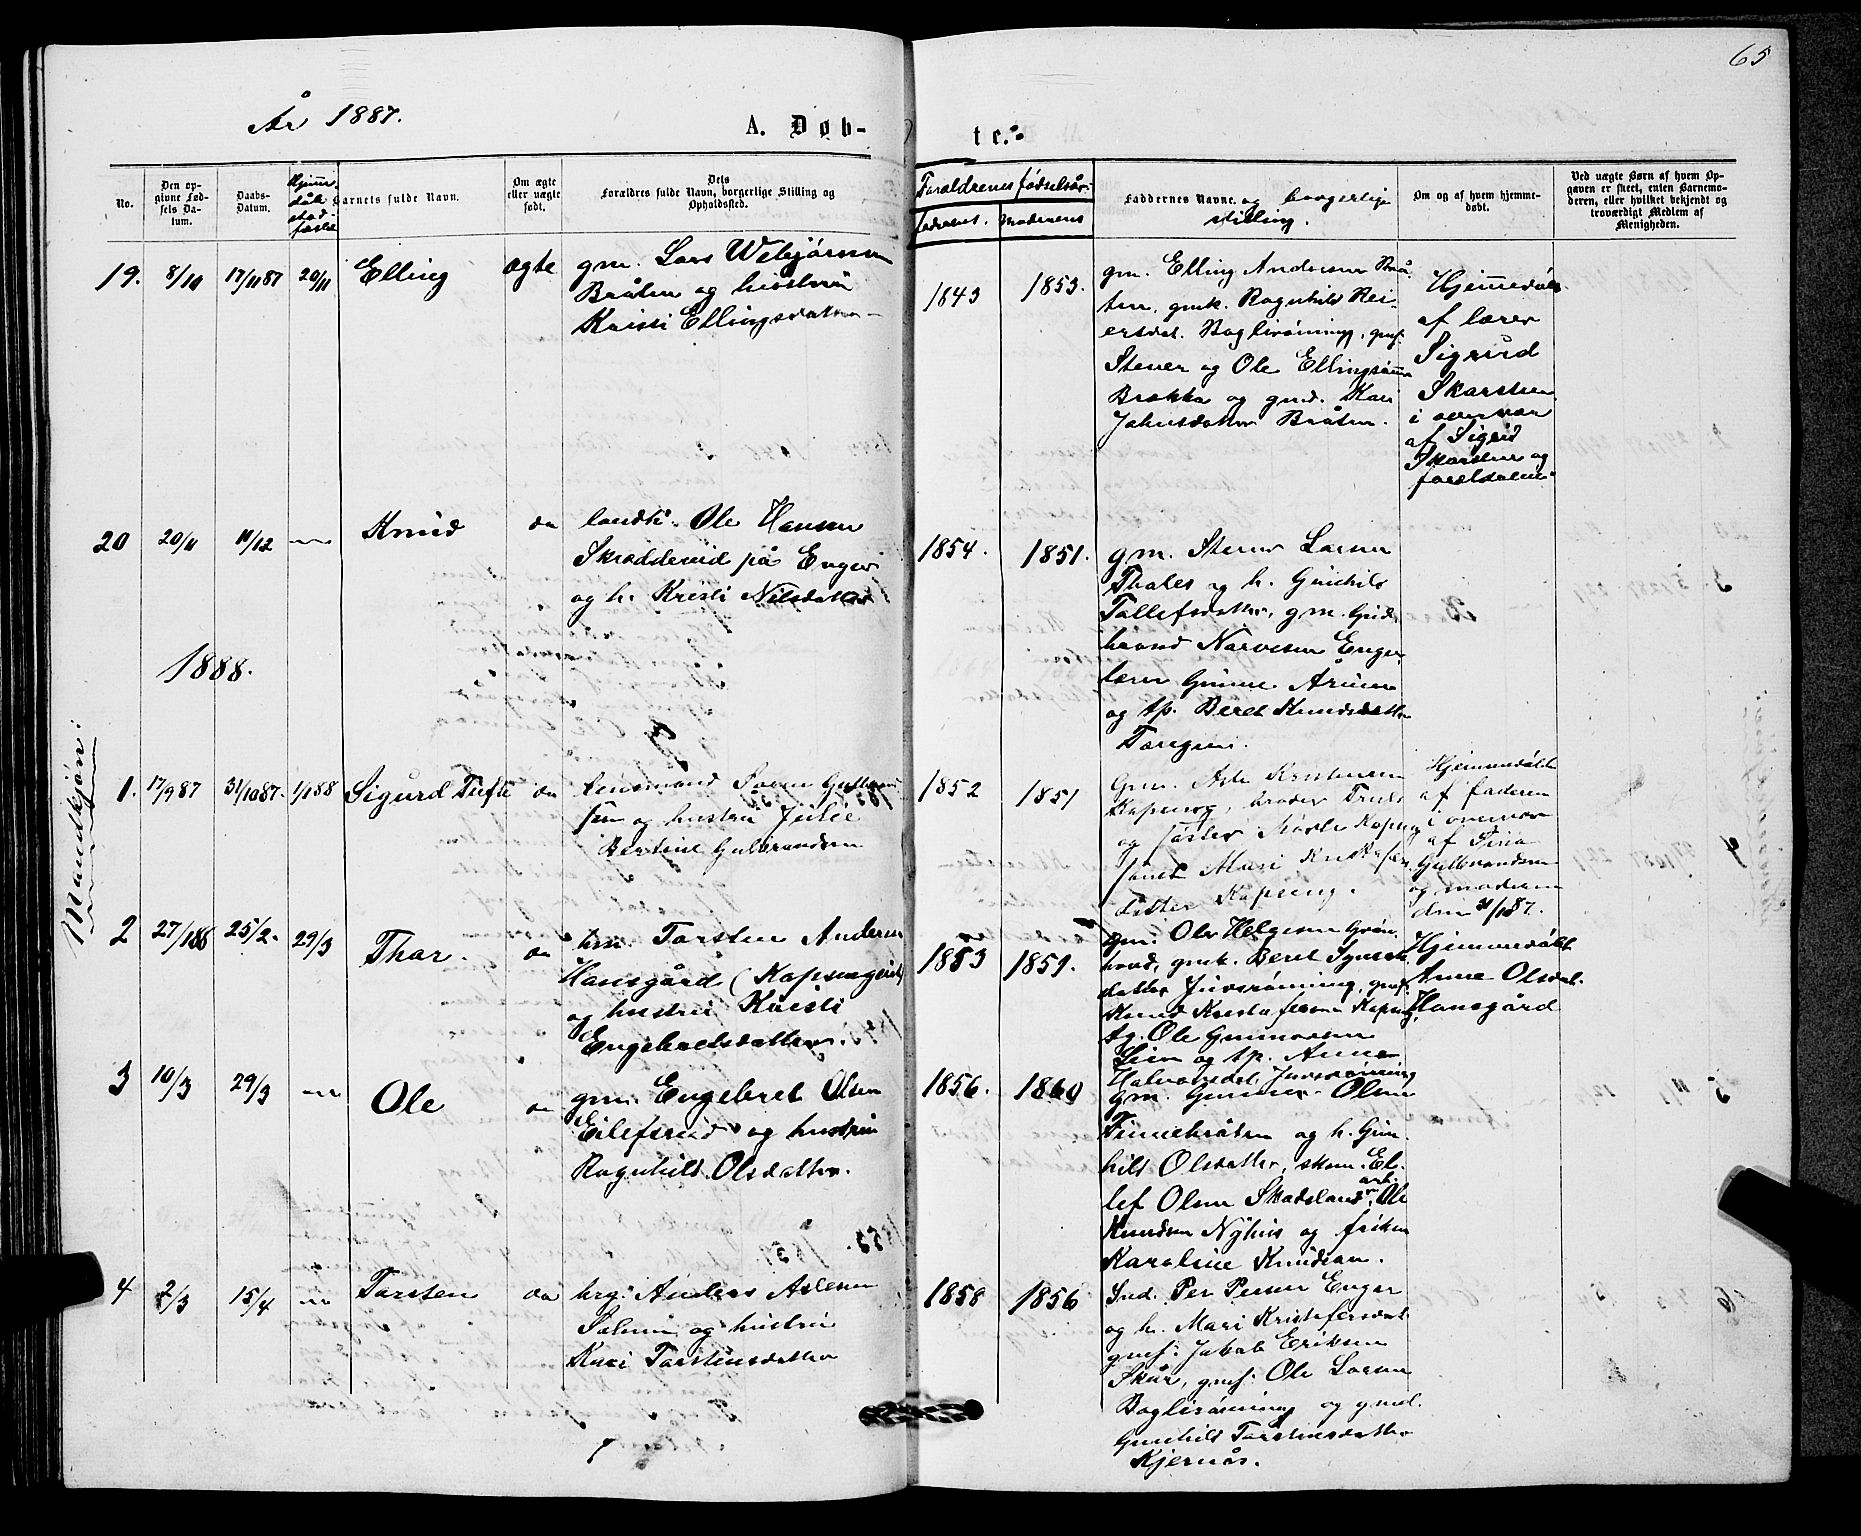 65
År 1887.
A. Døb-
te.
No.
Den op-
givne Fød-
sels Da-
tum.
Daabs-
Datum.
Barnets fulde Navn.
Om ægte
eller uægte
født.
Dets
Forældres fulde Navn, borgerlige Stilling og
Opholdssted.
Forældrenes fødselsår.
Faderens.
Moderens
Faddernes Navne. og borgerlige
stilling.
Om og af hvem hjemme-
døbt.
Ved uægte Børn af hvem Op-
gaven er skeet, enten Barnemo-
deren, eller hvilket bekjendt og
troværdigt Medlem af
Menigheden.
Mandkjøn.
19. 8/10 17/11 87 20/11 Elling ægte
gm. Lars
Bråten og hustru
Kristi Ellingsdatter
1843 1853.
gm. Elling Andersen Brå-
ten, gmk. Ragnhild Rei-
ersdat. Haglirøning, gmf.
Stener og Ole Ellingsønner
Brækka og gmd. Kari
Jahnsdatter Bråten.
Hjemmedøbt
af lærer
Sigurd
Skarsten
i overvær
af Sigrid
Skarsten og
forældrene
20 20/11 11/12 Knud do
Ole Hansen
Skrædderud på Enger
og h. Kristi Nilsdatter
1854. 1851.
gm. Stener Larsen
Thales og h. Gunhild
Tollefsdatter, gm. Gud-
brand Narvesen Enger
Gunne
og tp. Beret Knudsdatter
1888.
1. 17/9 87 31/10 87. 1/1 88 Sigurd Tufte do
lensmand Søren Gulbrand-
sen og hustru Julie
Bertine Gulbrandsen
1852 1851
Gm. Asle Kristensen
Kapseng, broder Truls
og søster Marte Kapseng
samt Mari Kristofers-
datter Kapseng.
Hjemmedøbt
af faderen
i overvær
af Tina
Gulbrandsen
og moderen
den 31/10 87.
2 27/1 88 25/2. 29/3 Thor. do
Torsten Andersen
Hansgård (Kapsengeiet)
og hustru Kristi
Engebretsdatter.
1853 1851.
gm. Ole Helgesen Grøn-
hovd, gmk. Beret
datter Juvsrøning, gmf.
Knud Kristofersen Kapseng,
tg. Ole Gunnarsen
Lien og tp. Anne
Halvorsdat. Juvsrøning
Hjemmedøbt
Anne Olsdat.
Hansgård
3 10/3 29/3 Ole do
gm. Engebret Olsen
Eilefsrud og hustru
Ragnhild Olsdatter.
1856. 1860
gm. Gunder Olsen
Finnebråten og h. Gun-
hild Olsdatter, skom. El-
lef Olsen Skadeland, arb. Ole
Knudsen Nyhus og frøken
Karoline Knudsen.
4 2/3 15/4 Torsten do
brg. Anders Aslesen
og hustru
Kari Torstensdatter
1858 1856
Snd. Per Persen Enger
og h. Mari Kristofersdat.
gmf. Jakob Eriksen
Skår, gmf. Ole Larsen
Haglirøning og gmd.
Gunhild Torstensdatter
Kjernås.